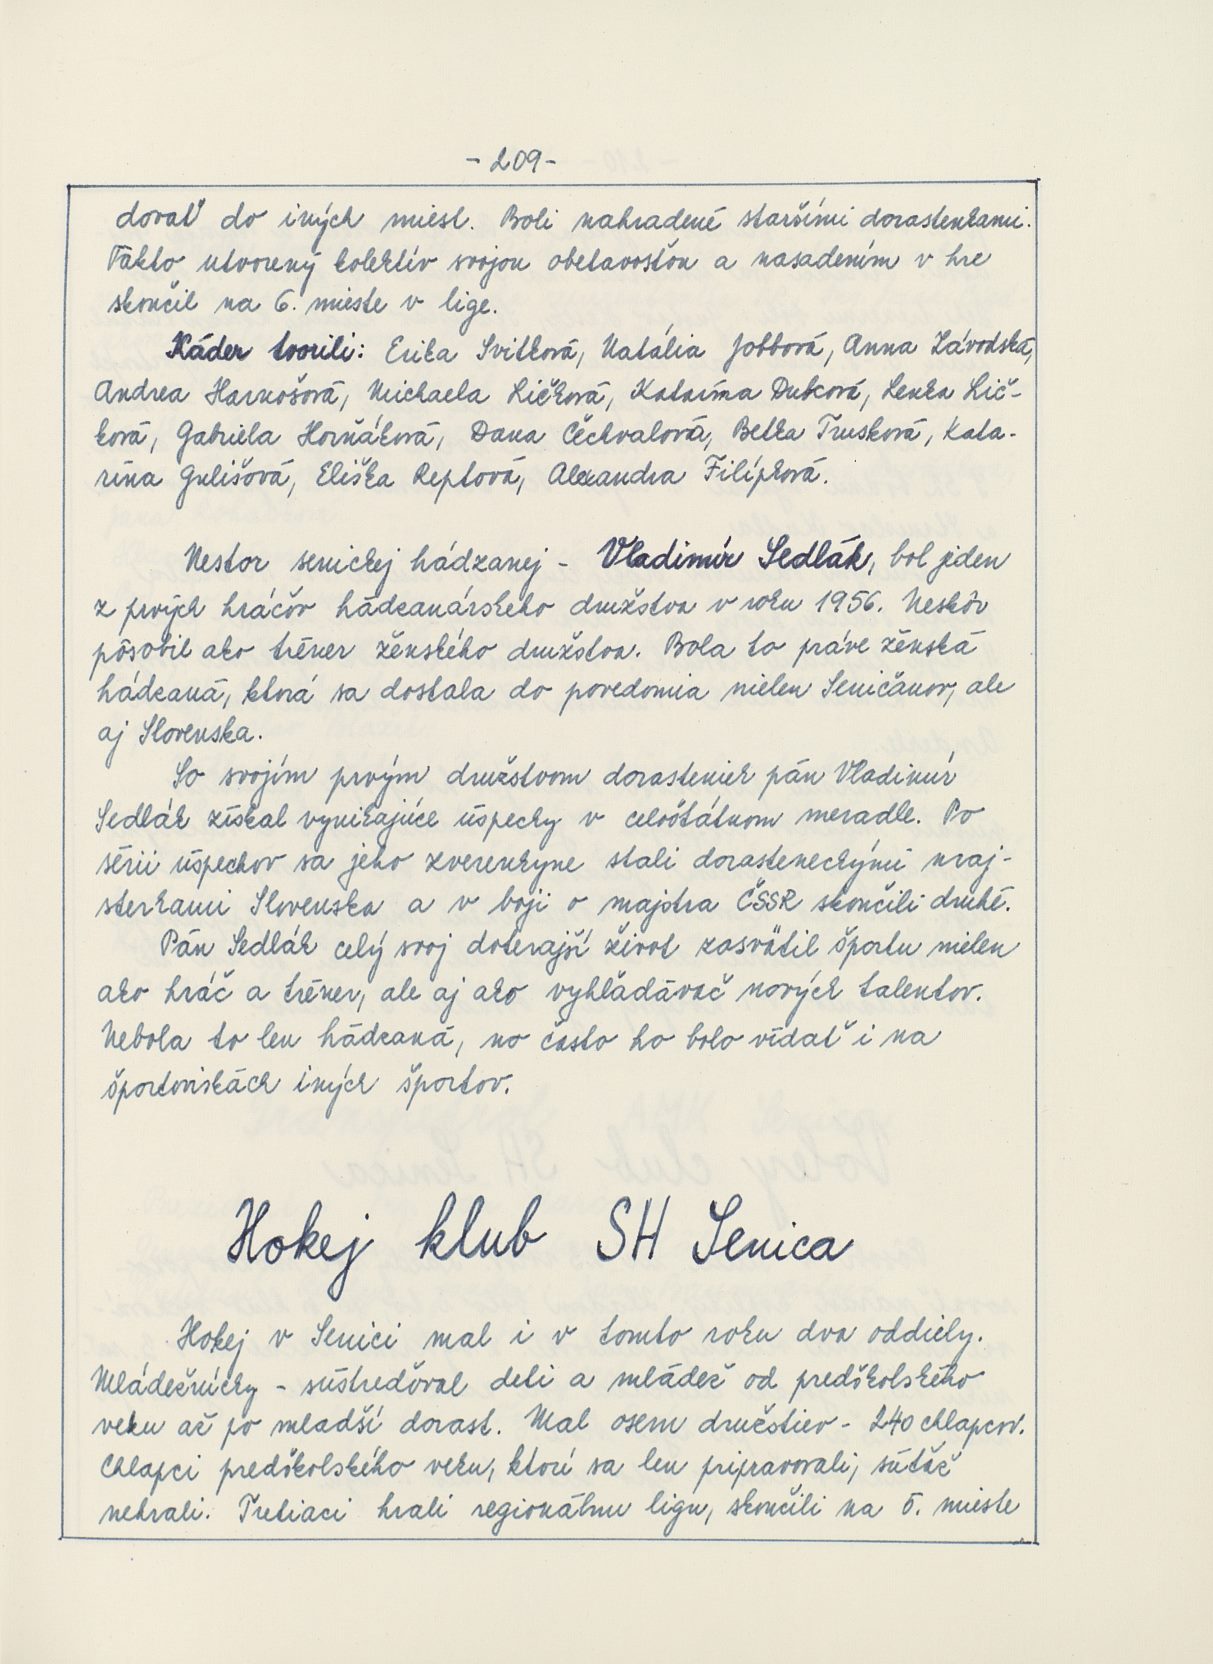 - 209 -
dovať do iných miest. Boli nahradené staršími dorastenkami.
Takto utvorený kolektív svojou obetavosťou a nasadením v hre
skončil na 6. mieste v lige.
Káder tvorili: Erika Svitková, Natália Jobbová, Anna Závodská,
Andrea Harnošová, Michaela Ličková, Katarína Dubcová, Lenka Lič-
ková, Gabriela Horňáková, Dana Čechvalová, Betka Trusková, Kata-
rína Gulišová, Eliška Reptová, Alexandra Filípková.
Nestor senickej hádzanej - Vladimír Sedlák, bol jeden
z prvých hráčov hádzanárskeho družstva v roku 1956. Neskôr
pôsobil ako tréner ženského družstva. Bola to práve ženská
hádzaná, ktorá sa dostala do povedomia nielen Seničanov, ale
aj Slovenska.
So svojím prvým družstvom dorasteniek pán Vladimír
Sedlák získal vynikajúce úspechy v celoštátnom meradle. Po
sérii úspechov sa jeho zverenkyne stali dorasteneckými maj-
sterkami Slovenska a v boji o majstra ČSSR skončili druhé.
Pán Sedlák celý svoj doterajší život zasvätil športu nielen
ako hráč a tréner, ale aj ako vyhľadávač nových talentov.
Nebola to len hádzaná, no často ho bolo vídať i na
športoviskách iných športov.
Hokej klub SH Senica
Hokej v Senici mal i v tomto roku dva oddiely.
Mládežnícky - sústreďoval deti a mládež od predškolského
veku až po mladší dorast. Mal osem družstiev - 240 chlapcov.
Chlapci predškolského veku, ktorí sa len pripravovali, súťaž
nehrali. Tretiaci hrali regionálnu ligu, skončili na 5. mieste